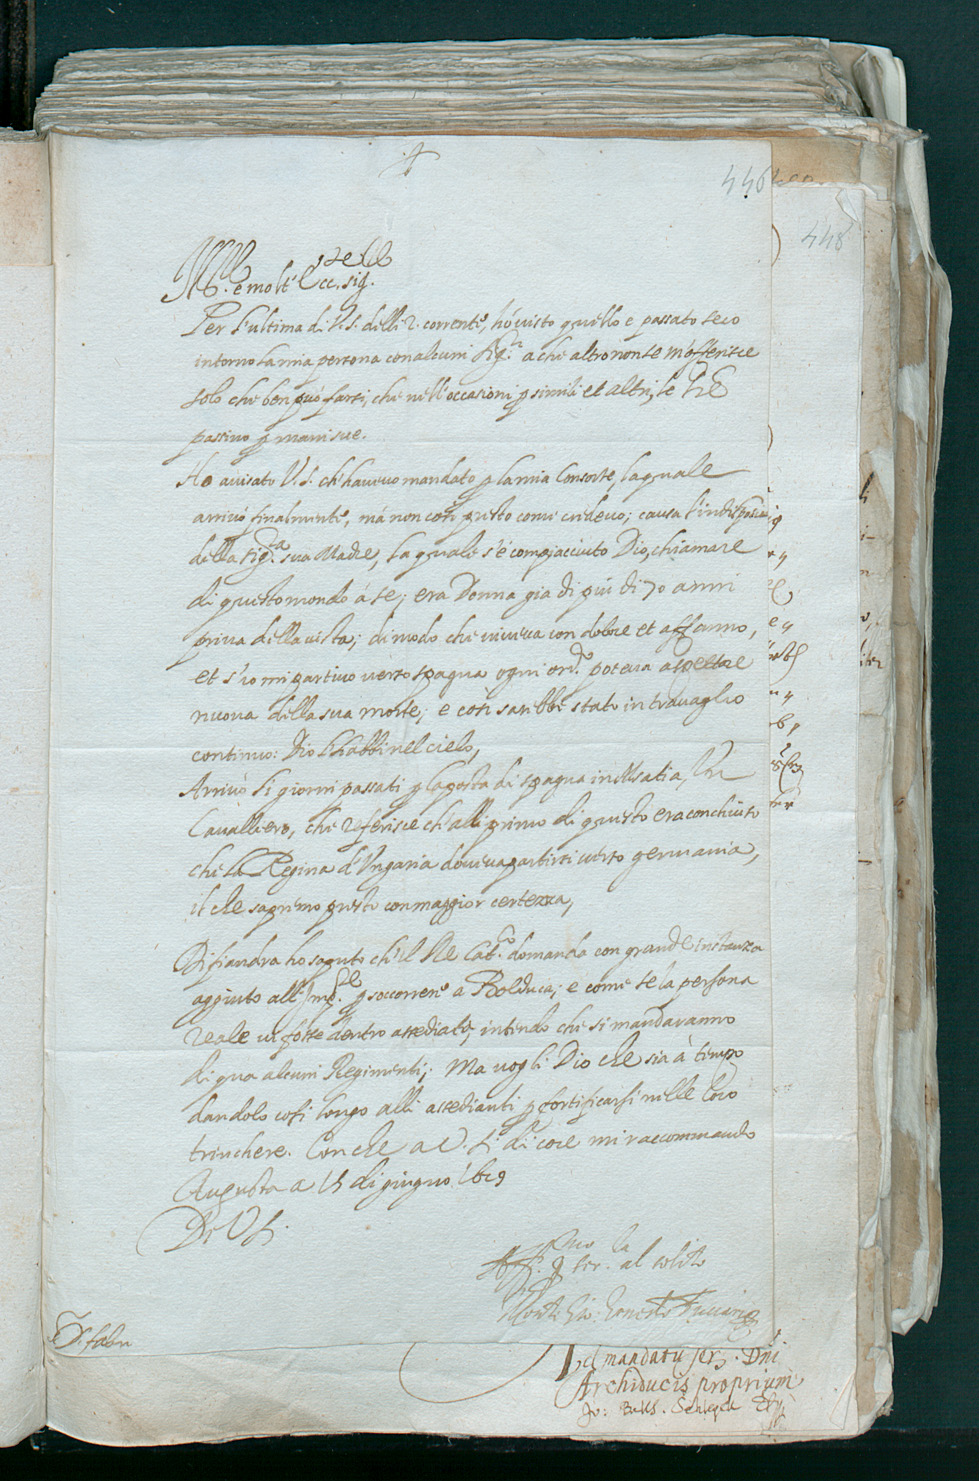 446
448
Ill.re e molt' Ecc. sig.
Per l'ultima di V.S. delli 2. corrente, hò visto quello e passato seco
intorno la mia persona con alcuni sig.ri a che altro non se m'offerisce
solo che ben può farsi, che nell'occasioni p simili et altri, le
passino p mani sue.
Ho avisato V.S. ch'havevo mandato p la mia Consorte, la quale
arrivò finalmente, mà non così presto come credevo; causa l'indisposⁿᵉ
della sig.ra sua Madre, la quale s'è compiacciuto Dio, chiamare
di questo mondo à se; era Donna gia di più di 70 anni
priva della vista; di modo che viveva con dolore et affanno,
et s'io mi partivo verso spagna ogni ord.o poteva aspettare
nuova della sua morte; e così sarebbe stato in travaglio
continuo: Dio l'habbi nel cielo,
Arrivò li giorni passati p la posta di spagna in Alsatia, Un
Cavalliero, che referisce ch'alli primo di questo era conchiuso
che la Regina d'Ungaria doveva partirsi verso germania,
il che sapremo presto con maggior certezza,
Di fiandra ho saputo ch'il Re Cat.co domanda con grande instanza
aggiuto all' Imp.le p soccorrere a Bolduca; e come se la persona
reale vi fosse dentro assediata, intendo che si mandaranno
di qua alcuni Regimenti; Ma vogli Dio che sia à tempo
dandolo cosi longo alli assedianti p fortificarsi nelle loro
trinchere. Con che a V.S. di core mi raccommando
Augusta a 15 di giugno 1629
Di V.S.
Aff.mo p ser.la al solito
Conte Gio: Ernesto Fuccari
S. fabri
Ad mandatu ser. Dni
Archiducis proprium